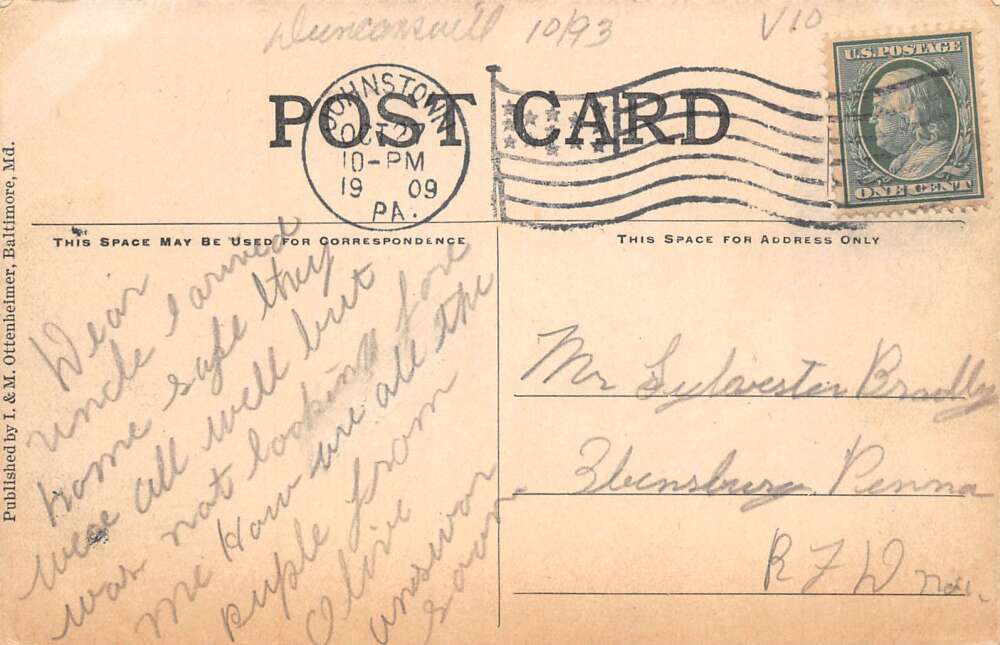 Duncansvill 10/93 V10
POST CARD
U.S. POSTAGE
ONE CENT
JOHNSTOWN
OCT 27
10-PM
19 09
PA.
THIS SPACE MAY BE USED FOR CORRESPONDENCE
THIS SPACE FOR ADDRESS ONLY
Published by I. & M. Ottenheimer, Baltimore, Md.
Dear
uncle I arived
home safe they
were all well but
was not looking fore
me How are all the
puple from
Olive
answor
soon
Mr Sylvester Bradley
Ebensburg Penna
R F D No1.